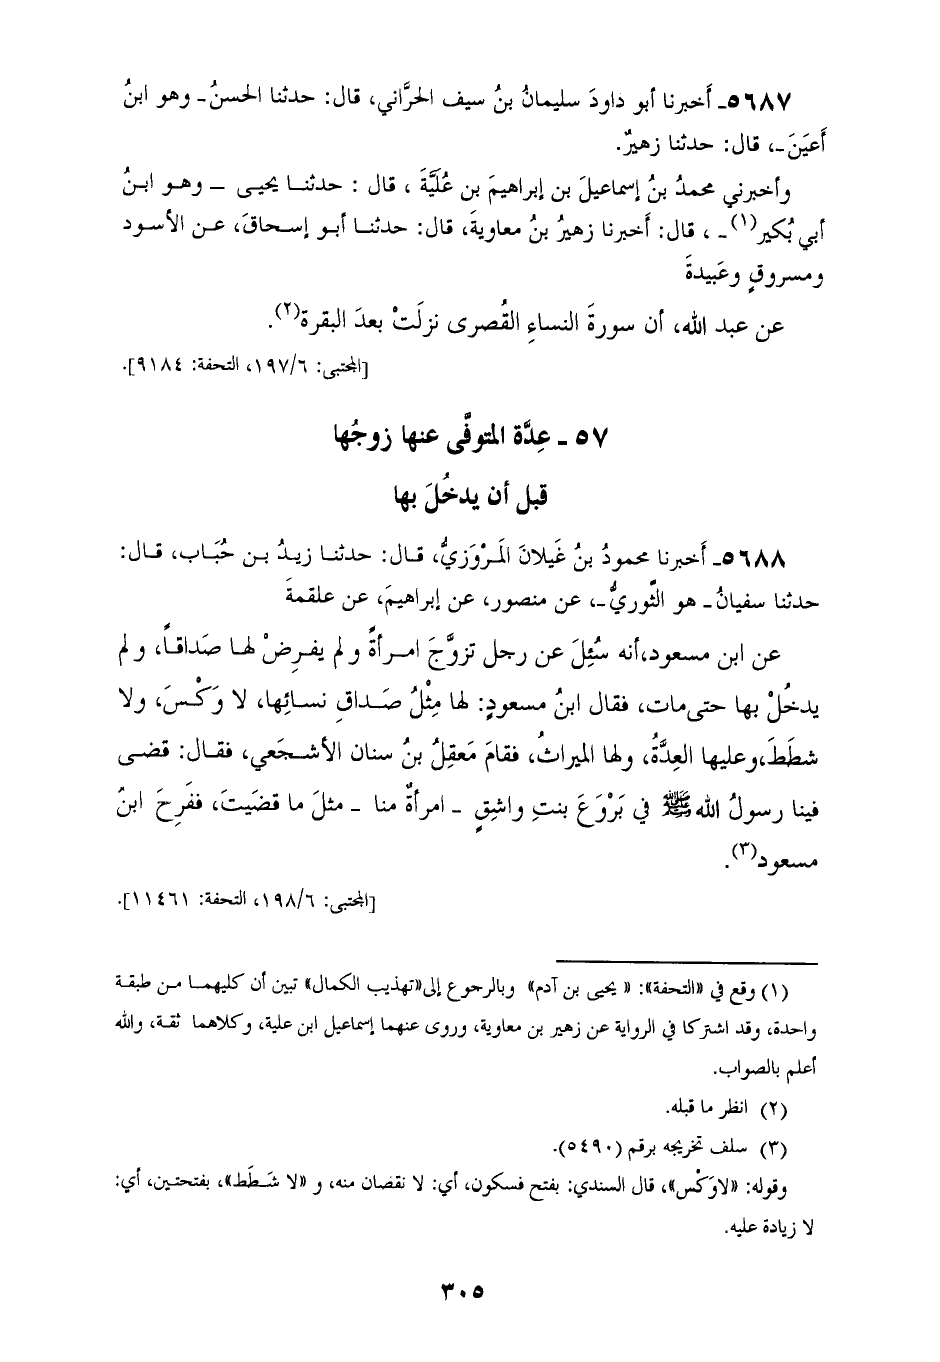 ٥٦٨٧ـ أَخبرنا أبو داودَ سليمانُ بنُ سيف الحرَّاني، قال: حدثنا الحسنُ ـ وهو ابنُ
أَعيَنَ ـ، قال: حدثنا زهيرٌ.
وأخبرني محمدُ بنُ إسماعيلَ بن إبراهيمَ بن عُلَيَّةَ ، قال : حدثنا يحيى – وهو ابنُ
أبي بُكير(١) ـ ، قال: أَخبرنا زهيرُ بنُ معاويةَ، قال: حدثنا أبو إسحاقَ، عن الأسود
ومسروقٍ وعَبيدةَ
عن عبد الله، أن سورةَ النساءِ القُصرى نزلَتْ بعدَ البقرة(٢).
[المجتبى: ١٩٧/٦، التحفة: ٩١٨٤].
٥٧ ـ عِدَّة المتوفَّى عنها زوجُها
قبل أن يدخُلَ بها
٥٦٨٨ـ أَخبرنا محمودُ بنُ غَيلانَ المَرْوَزيُّ، قال: حدثنا زيدُ بن حُبَاب، قال:
حدثنا سفيانُ ـ هو الثَّوريُّ ـ، عن منصور، عن إبراهيمَ، عن علقمةَ
عن ابن مسعود،أنه سُئِلَ عن رجل تزوَّجَ امرأةً ولم يفرِضْ لها صَداقاً، ولم
يدخُلْ بها حتى مات، فقال ابنُ مسعودٍ: لها مِثْلُ صَداقِ نسائِها، لا وَكْسَ، ولا
شطَطَ،وعليها العِدَّةُ، ولها الميراثُ، فقامَ مَعقِلُ بنُ سنان الأشجَعي، فقال: قضى
فينا رسولُ الله ﷺ في بَرْوَعَ بنتِ واشِقٍ ـ امرأةٌ منا ـ مثلَ ما قضَيتَ، ففَرِحَ ابنُ
مسعود(٣).
[المجتبى: ١٩٨/٦، التحفة: ١١٤٦١].
(١) وقع في «التحفة»: « يحيى بن آدم» وبالرجوع إلى«تهذيب الكمال» تبين أن كليهما من طبقة
واحدة، وقد اشتركا في الرواية عن زهير بن معاوية، وروى عنهما إسماعيل ابن علية، وكلاهما ثقة، والله
أعلم بالصواب.
(٢) انظر ما قبله.
(٣) سلف تخريجه برقم (٥٤٩٠).
وقوله: «لاوَكْس»، قال السندي: بفتح فسكون، أي: لا نقصان منه، و «لا شَطَط»، بفتحتين، أي:
لا زيادة عليه.
٣٠٥